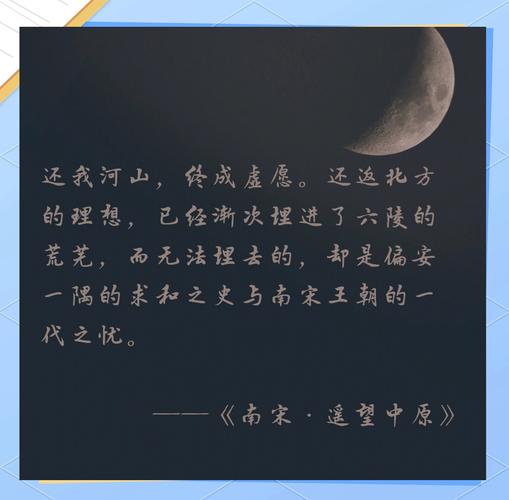 还我河山，终成虚愿。还返北方
的理想，已经渐次埋进了六陵的
荒芜，而无法埋去的，却是偏安
一隅的求和之史与南宋王朝的一
代之忧。
——《南宋·遥望中原》